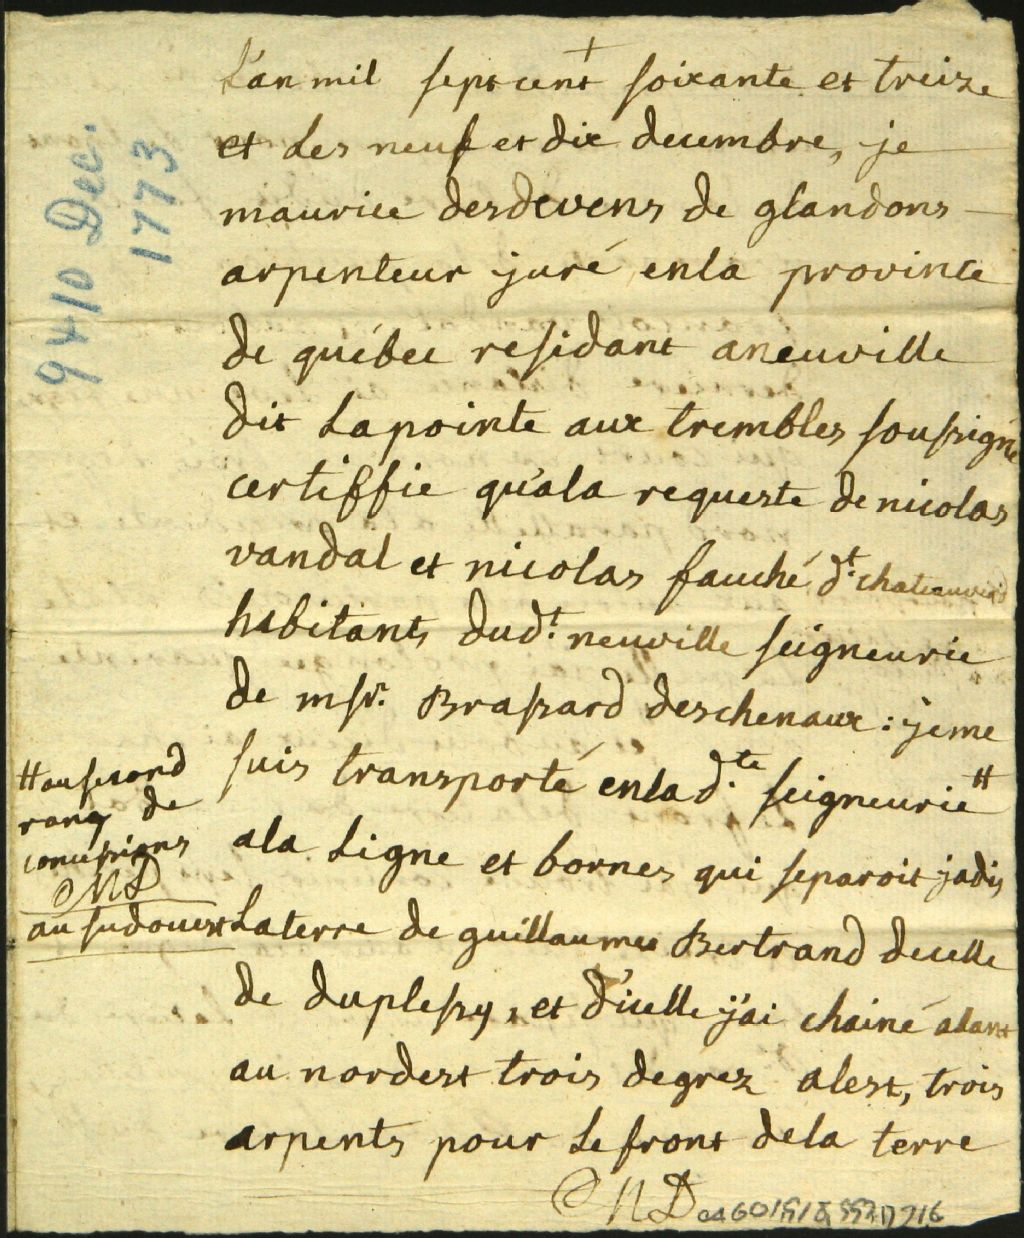 L'an mil sept cent soixante et treize
et les neuf et dix decembre, je
maurice desdevens de glandons
arpenteur juré enla province
de québec residant aneuville
dit Lapointe aux trembles soussigné
certiffie qu'ala requeste de nicolas
vandal et nicolas fauché dt. chateauvert
habitants dudt. neuville seigneurie
de msr. Brassard deschenaux: jeme
suis transporté enlad.te seigneurie #
ala Ligne et bornes qui separoit jadis
Laterre de guillaumes Bertrand decelle
de duplessy, et d'icelle j'ai chainé alant
au nordest trois degrez alest, trois
arpents pour Le front dela terre
MD
# ausecond
rang de
concessions
MD
au sudouest
9 & 10 Dec.
1773